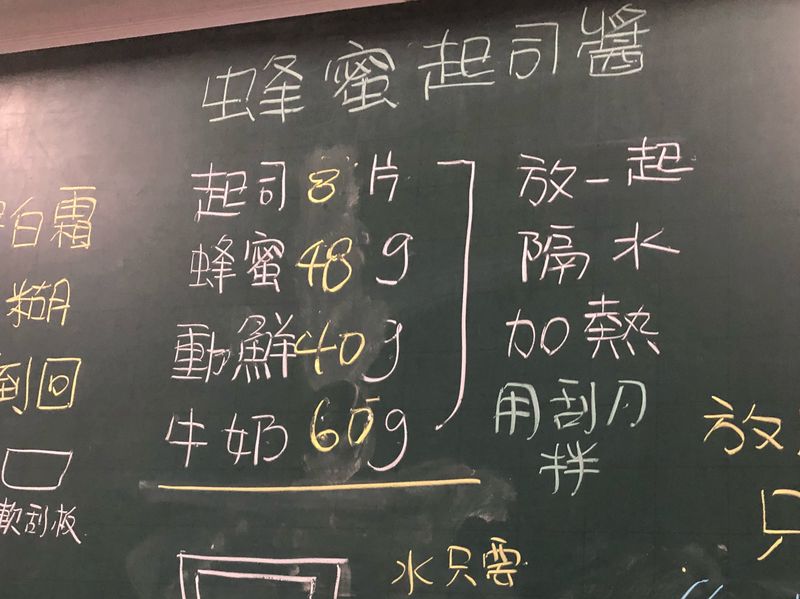 蜂蜜起司醬
起司8片
蜂蜜48g
動鮮40g
牛奶60g
放一起
隔水
加熱
用刮刀
拌
白霜
糊
倒回
軟刮板
水只需
放
只